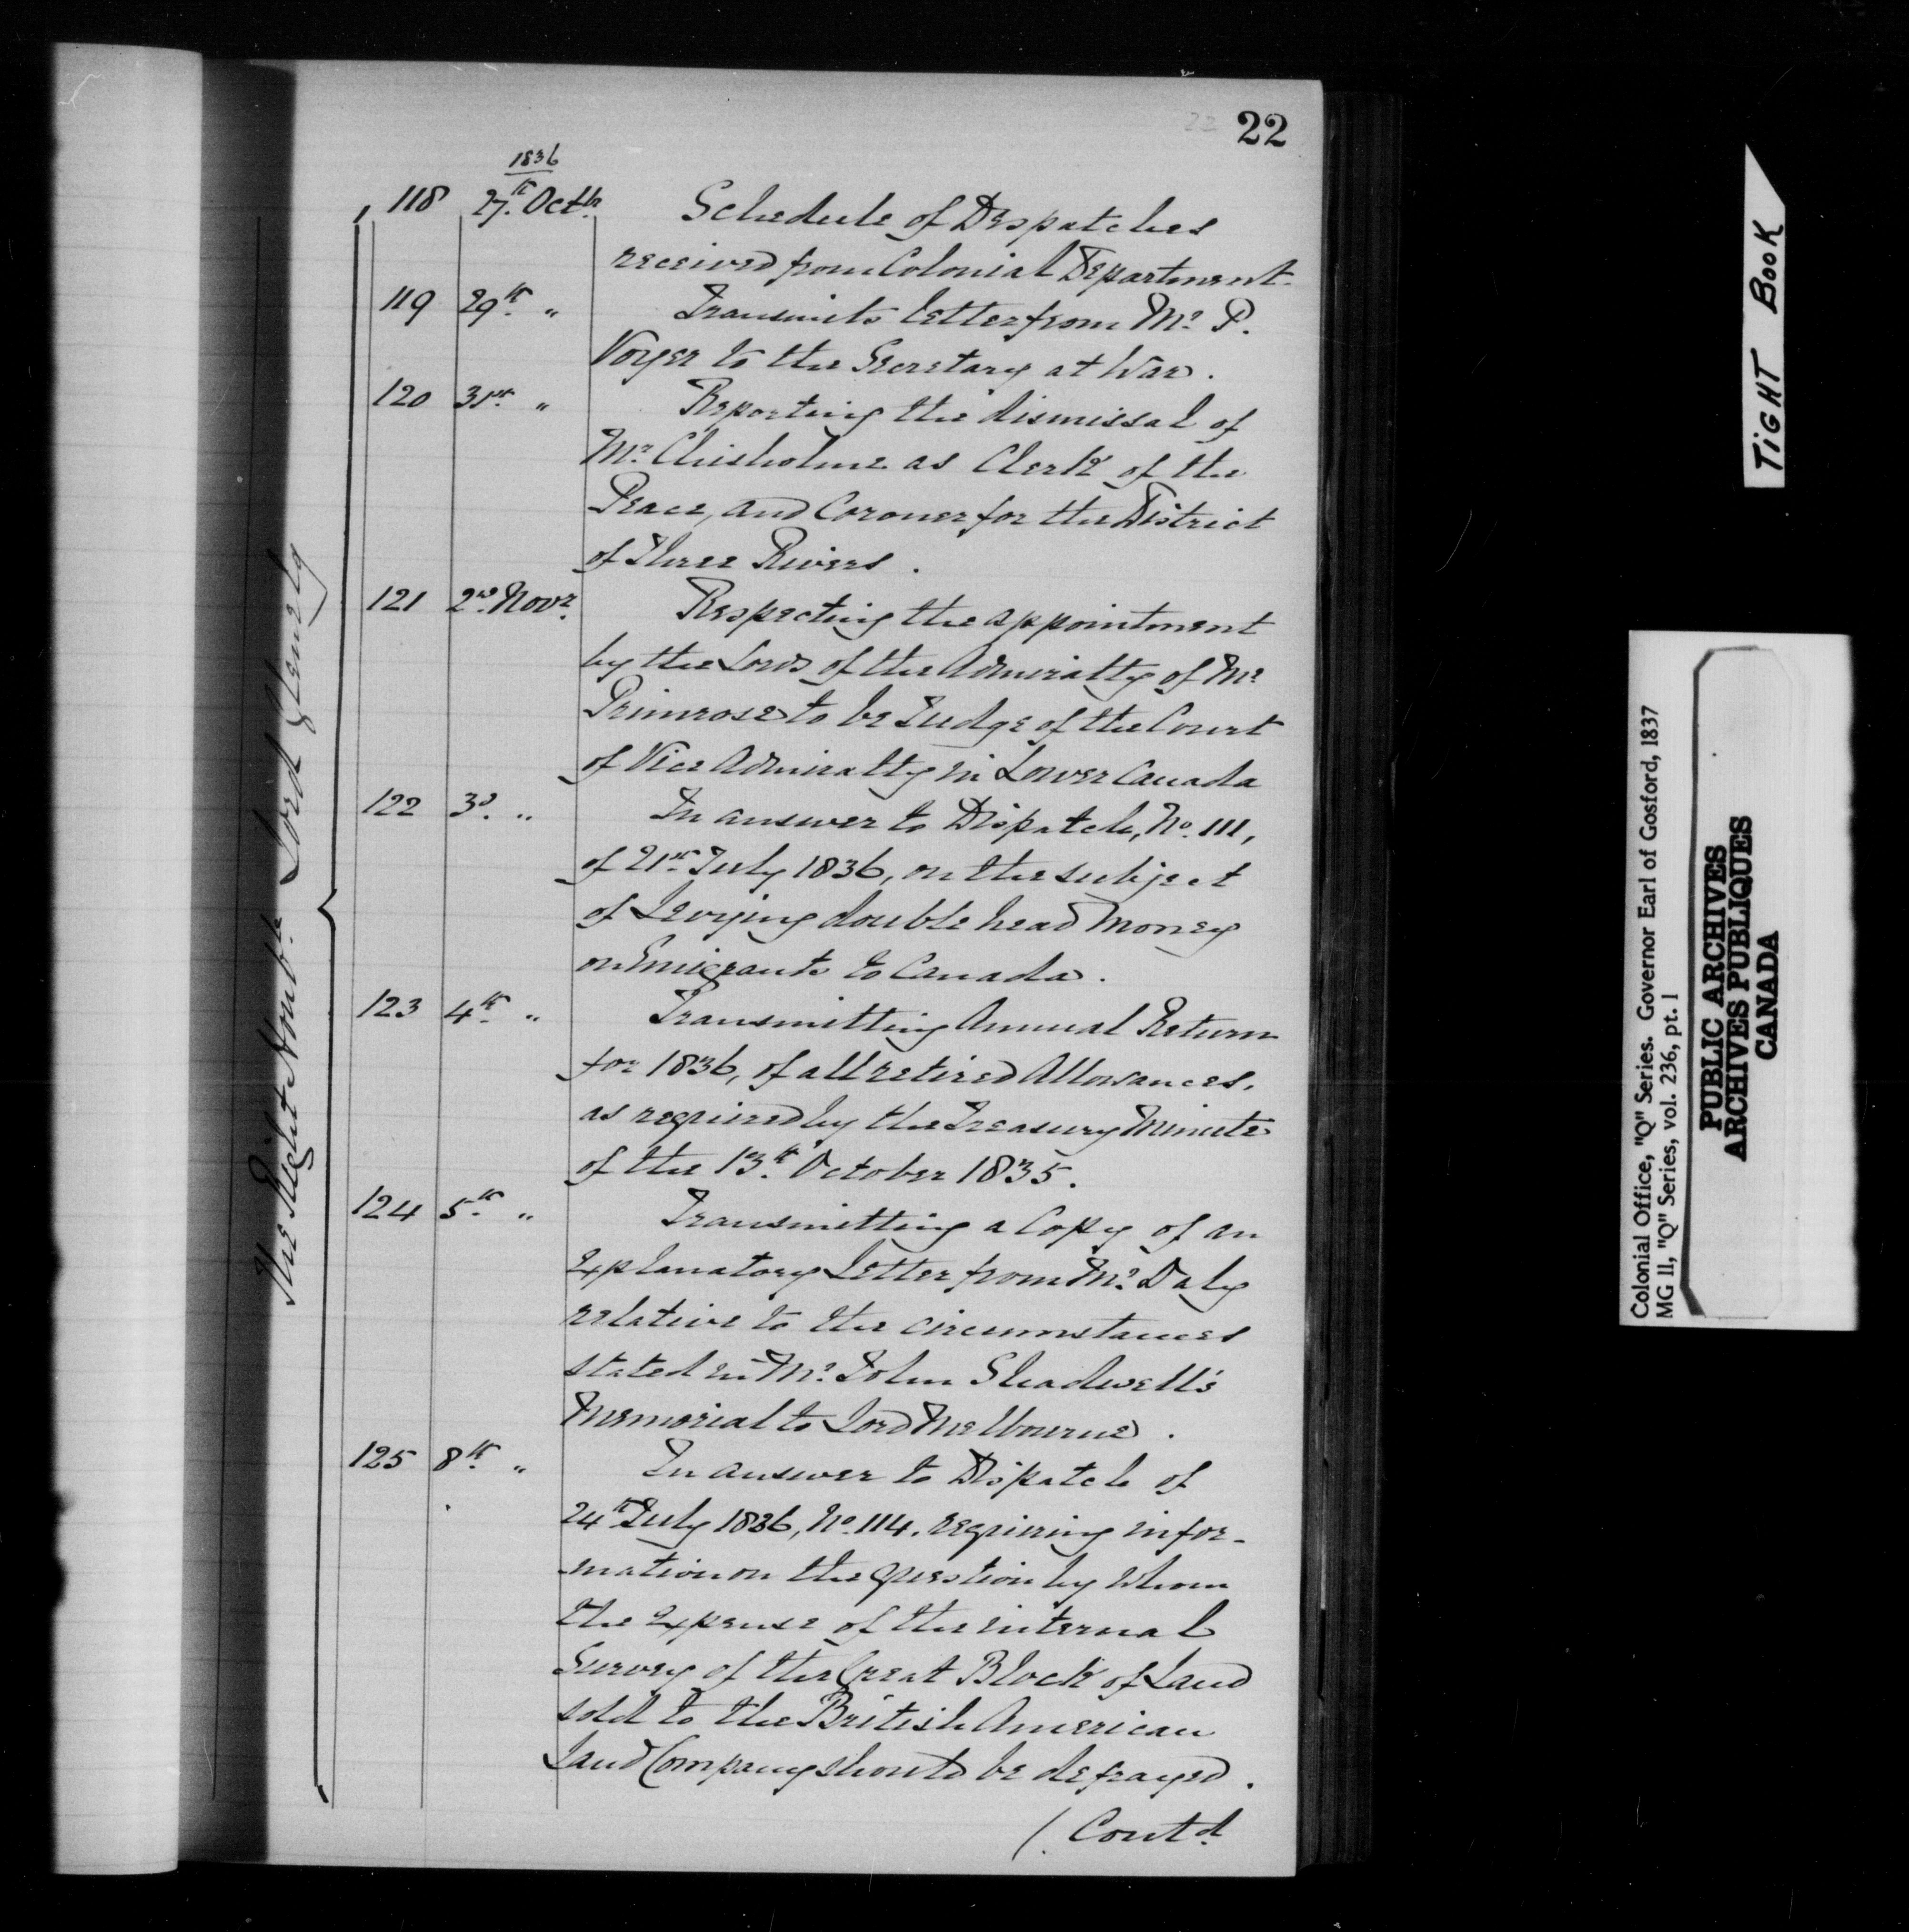 22 22
1836
118 27th Octbr Schedule of Despatches
received from Colonial Department.
119 29th " Transmits letter from Mr P.
Voyer to the Secretary at War.
120 31st " Reporting the dismissal of
Mr Chisholme as Clerk of the
Peace, and Coroner for the District
of Three Rivers.
121 2nd Novr Respecting the appointment
by the Lords of the Admiralty of Mr
Primrose to be Judge of the Court
of Vice Admiralty in Lower Canada
122 3d " In answer to Dispatch, No. 111,
of 21st July 1836, on the subject
of Levying double head money
on Emigrants to Canada.
123 4th " Transmitting Annual Return
for 1836, of all retired Allowances,
as required by the Treasury Minute
of the 13th October 1835.
124 5th " Transmitting a Copy of an
Explanatory Letter from Mr Daly
relative to the circumstances
stated in Mr John Shadwell's
Memorial to Lord Melbourne.
125 8th " In answer to Dispatch of
24th July 1836, No. 114, requiring infor-
mation on the question by whom
the Expense of the internal
Survey of the Great Block of Land
sold to the British American
Land Company should be defrayed.
(Contd
The Right Honble Lord Glenelg
TIGHT BOOK
Colonial Office, "Q" Series. Governor Earl of Gosford, 1837
MG 11, "Q" Series, vol. 236, pt. 1
PUBLIC ARCHIVES
ARCHIVES PUBLIQUES
CANADA